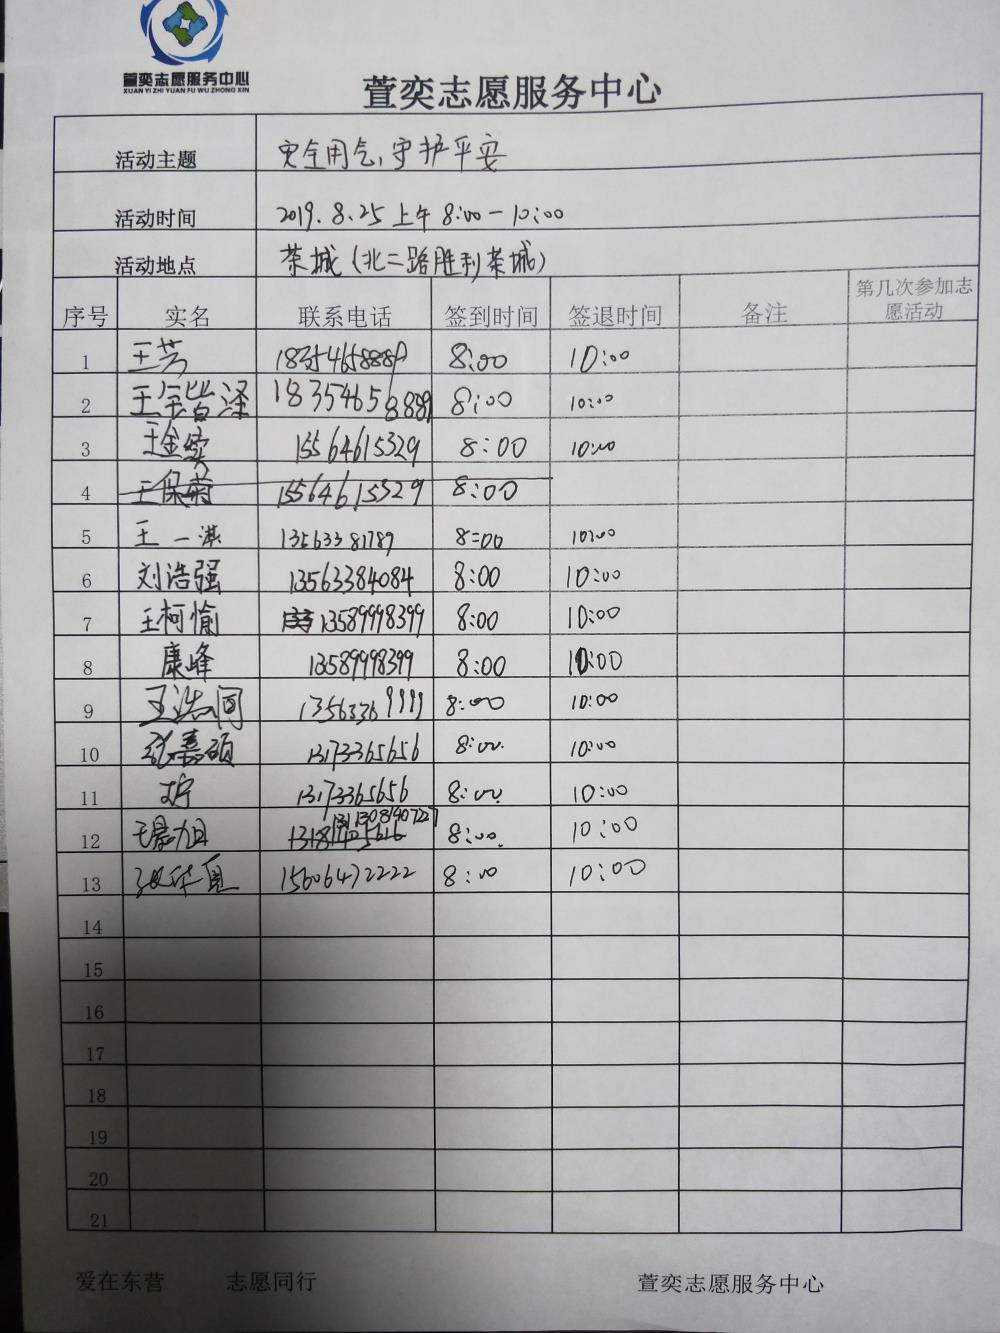 萱奕志愿服务中心
XUAN YI ZHI YUAN FU WU ZHONG XIN
萱奕志愿服务中心
活动主题 安全用气,守护平安
活动时间 2019.8.25 上午 8:00-10:00
活动地点 茶城(北二路胜利茶城)
序号 实名 联系电话 签到时间 签退时间 备注 第几次参加志愿活动
1 王芳 18354658889 8:00 10:00
2 王 泽 18354658889 8:00 10:00
3 王金 15564615329 8:00 10:00
4 王保菊 15564615329 8:00
5 王一淇 13563381789 8:00 10:00
6 刘浩强 13563384084 8:00 10:00
7 王柯愉 13589998399 8:00 10:00
8 康峰 13589998399 8:00 10:00
9 王 8:00 10:00
10 张嘉硕 13173365656 8:00 10:00
11 13173365656 8:00 10:00
12 8:00 10:00
13 15606472222 8:00 10:00
14
15
16
17
18
19
20
21
爱在东营 志愿同行 萱奕志愿服务中心